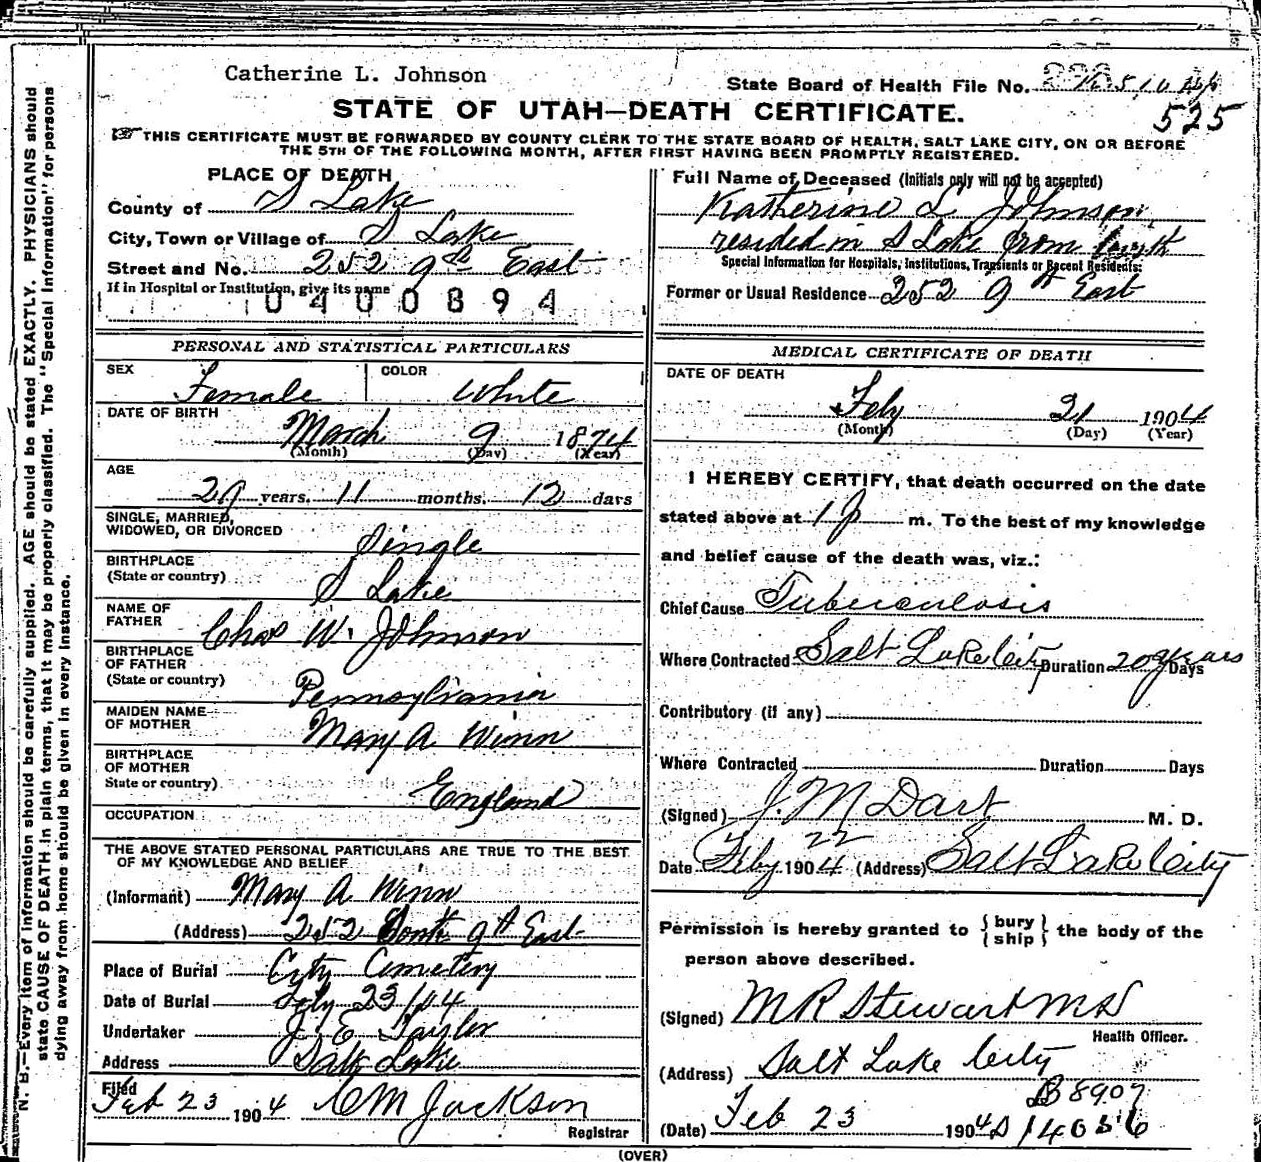 Catherine L. Johnson
State Board of Health File No.
525
STATE OF UTAH—DEATH CERTIFICATE.
THIS CERTIFICATE MUST BE FORWARDED BY COUNTY CLERK TO THE STATE BOARD OF HEALTH, SALT LAKE CITY, ON OR BEFORE
THE 5TH OF THE FOLLOWING MONTH, AFTER FIRST HAVING BEEN PROMPTLY REGISTERED.
PLACE OF DEATH
County of S Lake
City, Town or Village of S Lake
Street and No. 252 9th East
If in Hospital or Institution, give its name
0400894
Full Name of Deceased (Initials only will not be accepted)
Katherine L Johnson
resided in S Lake from birth
Special Information for Hospitals, Institutions, Transients or Recent Residents:
Former or Usual Residence 252 9th East
PERSONAL AND STATISTICAL PARTICULARS
SEX Female COLOR White
DATE OF BIRTH
March 9 1874
(Month) (Day) (Year)
AGE
29 years, 11 months, 12 days
SINGLE, MARRIED,
WIDOWED, OR DIVORCED Single
BIRTHPLACE
(State or country) S Lake
NAME OF
FATHER Chas W. Johnson
BIRTHPLACE
OF FATHER
(State or country) Pennsylvania
MAIDEN NAME
OF MOTHER Mary A Winn
BIRTHPLACE
OF MOTHER
State or country) England
OCCUPATION
THE ABOVE STATED PERSONAL PARTICULARS ARE TRUE TO THE BEST
OF MY KNOWLEDGE AND BELIEF
(Informant) Mary A Winn
(Address) 252 South 9th East
Place of Burial City Cemetery
Date of Burial Feby 23/04
Undertaker J E Taylor
Address Salt Lake
Filed
Feb 23 1904 C M Jackson
Registrar
MEDICAL CERTIFICATE OF DEATH
DATE OF DEATH
Feby 21 1904
(Month) (Day) (Year)
I HEREBY CERTIFY, that death occurred on the date
stated above at 1 p m. To the best of my knowledge
and belief cause of the death was, viz.:
Chief Cause Tuberculosis
Where Contracted Salt Lake City Duration Years Days
Contributory (if any)
Where Contracted Duration Days
(Signed) J. M Dart M. D.
Date Feby 22 1904 (Address) Salt Lake City
Permission is hereby granted to {bury
{ship} the body of the
person above described.
(Signed) M R Stewart M D
Health Officer.
(Address) Salt Lake City
B 8907
(Date) Feb 23 1904
(OVER)
N. B.—Every item of information should be carefully supplied. AGE should be stated EXACTLY. PHYSICIANS should
state CAUSE OF DEATH in plain terms, that it may be properly classified. The "Special Information" for persons
dying away from home should be given in every instance.